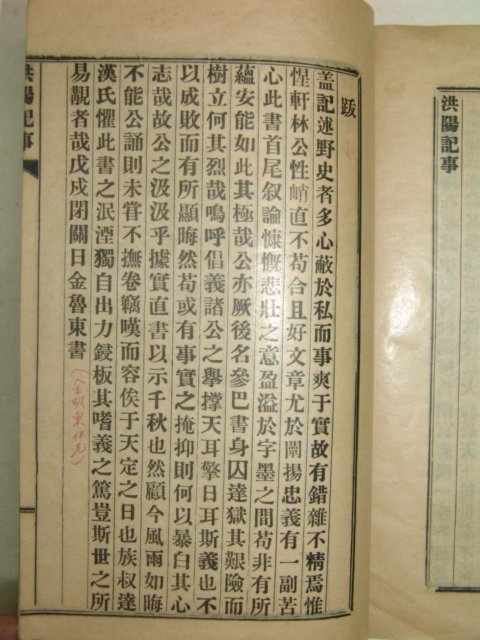 洪陽記事
跋
盖記述野史者多心蔽於私而事爽于實故有錯雜不精焉惟
惺軒林公性峭直不苟合且好文章尤於闡揚忠義有一副苦
心此書首尾叙論慷慨悲壯之意盈溢於字墨之間苟非有所
蘊安能如此其極哉公亦厥後名參巴書身囚達獄其艱險而
樹立何其烈哉嗚呼倡義諸公之擧撑天耳擎日耳斯義也不
以成敗而有所顯晦然苟或有事實之掩抑則何以暴白其心
志哉故公之汲汲乎據實直書以示千秋也然顧今風雨如晦
不能公誦則未甞不撫卷竊嘆而容俟于天定之日也族叔達
漢氏懼此書之泯湮獨自出力鋟板其嗜義之篤豈斯世之所
易覯者哉戊戍閉關日金魯東書
洪陽記事